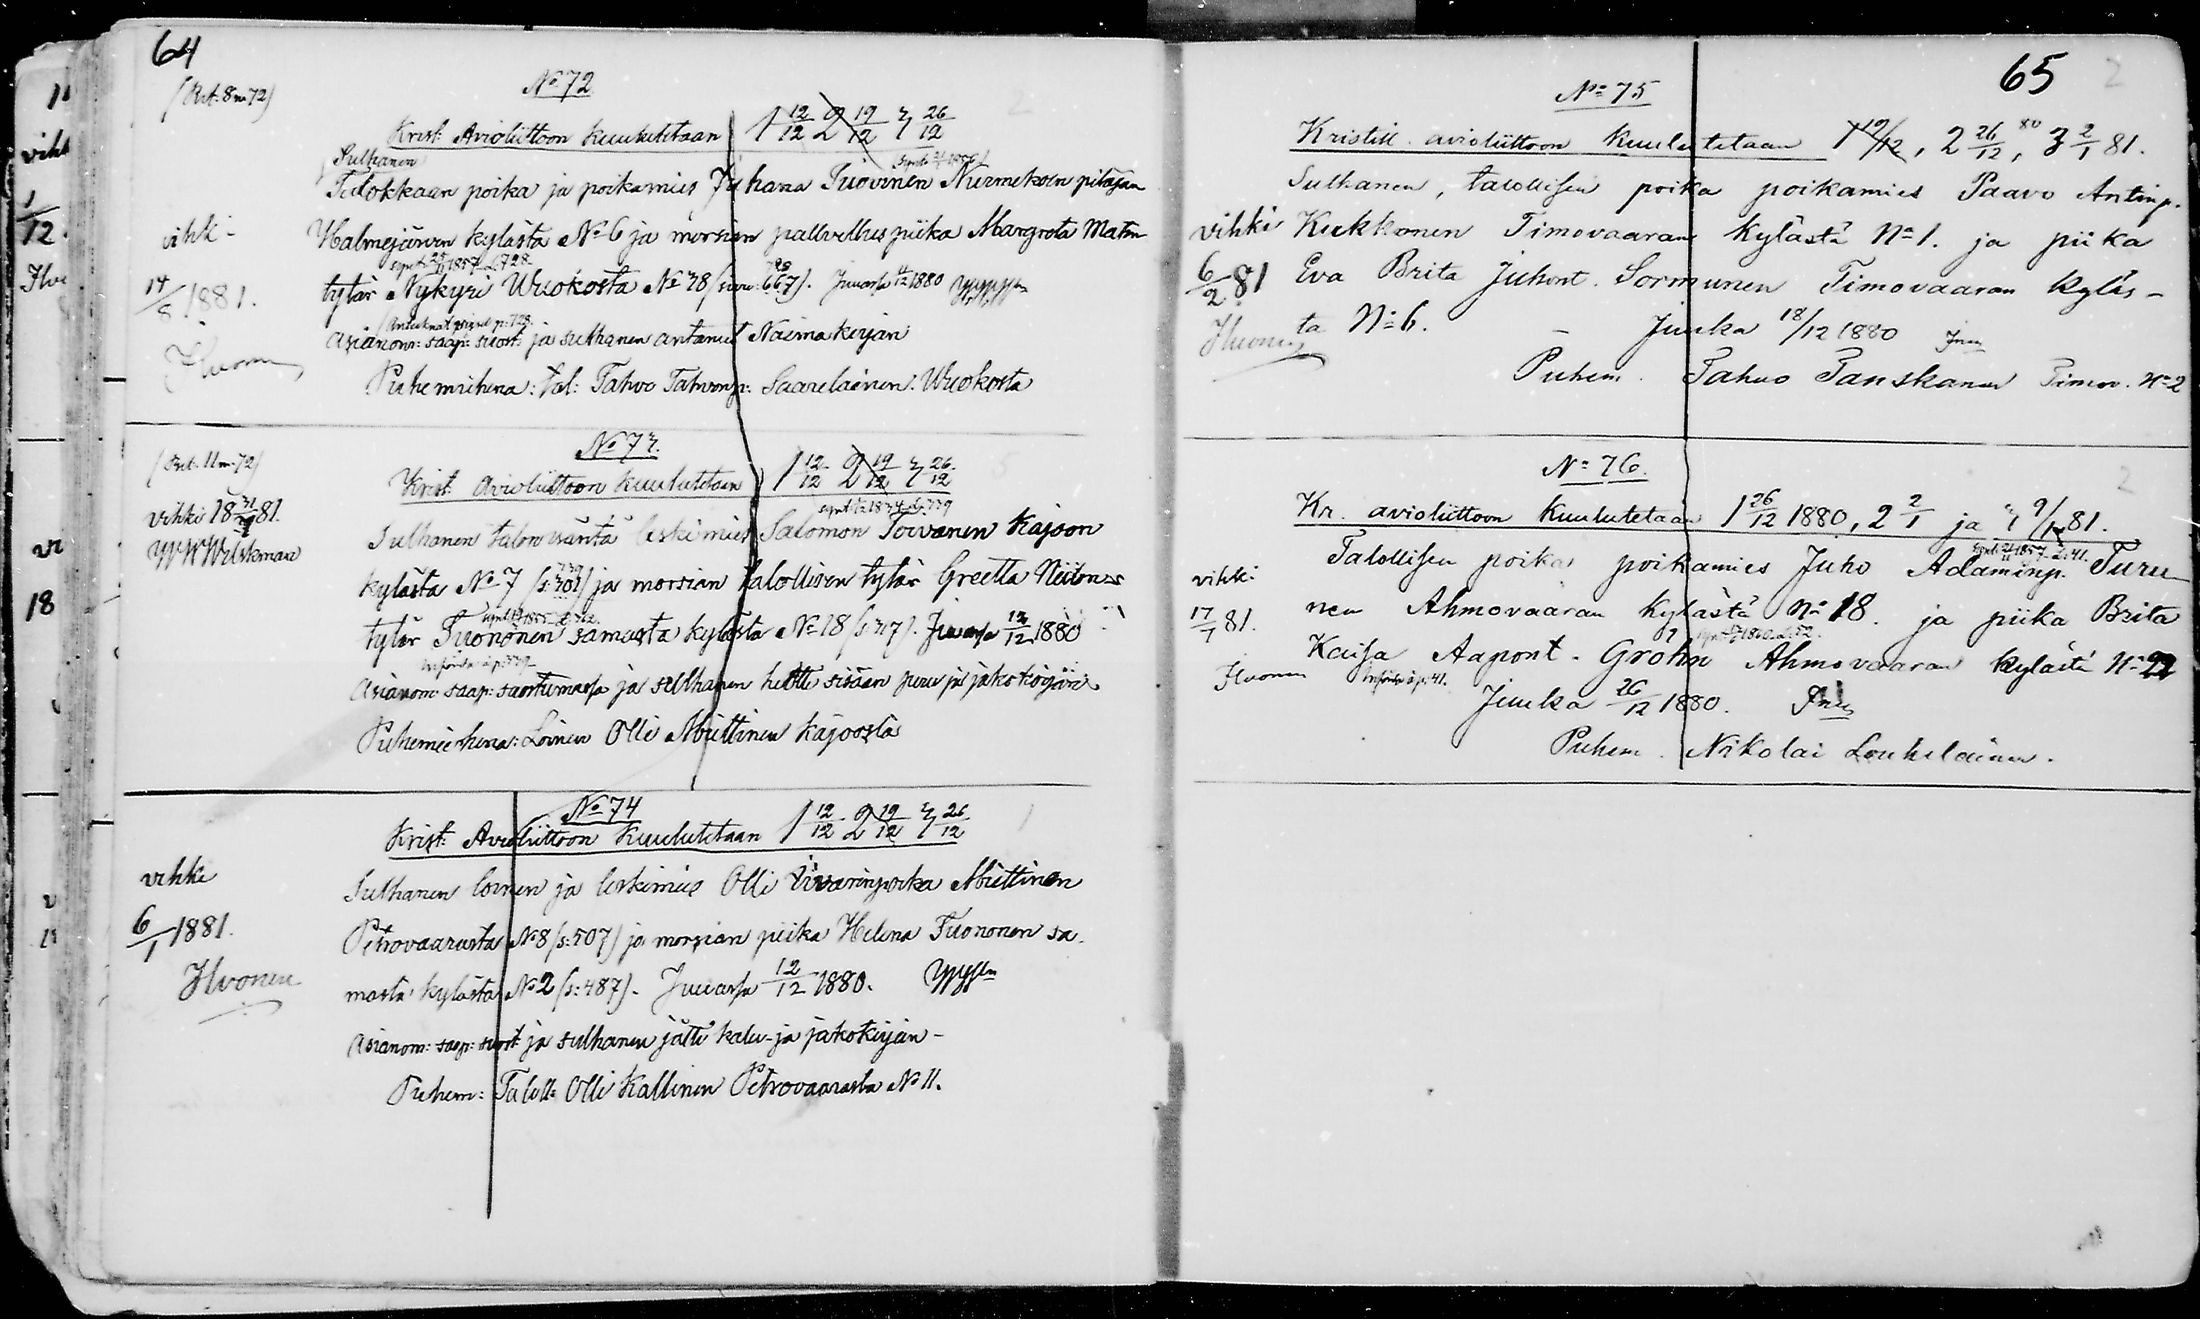 64
(Bet. 8 m 72)
No 72
Krist. Avioliittoon kuulutetaan 1 12/12 2 19/12 3 26/12
Sulhanen
Talokkaan poika ja poikamies Juhana Tuovinen Nurmeksen pitäjän
vihk- Halmejärven kylästä No 6 ja morsian pallvellus piika Margreta Matin
1857 728 728
14/8 1881. tytär Nykyri Wuokosta No 38 (sivu: 667). Juuassa 1880
Asianom: saap: suost: ja sulhanen antanut Naima kirjan
Puhemiehenä: tal: Tahvo Tahvonp: Saarelainen: Wuokosta
(Bet. 11 m 72)
No 73.
Krist. avioliittoon kuulutetaan 1 12/12 2 19/12 3 26/12
vihki 18 31/81.
W Wilskman
Sulhanen talon isäntä leskimies Salomon Toivanen Kajoon
kylästä No 7 (s: 301) ja morsian talollisen tytär Greetta Neiton
tytär Tuononen samasta kylästä No 18 (s 317). Juuassa 12/12 1880
Asianom: saap: suostumassa ja sulhanen heitti sisään puru ja jako kirjan
Puhemiehenä: Loinen Olli Miettinen Kajoosta
No 74
Krist. Avioliittoon Kuulutetaan 1 12/12 2 19/12 3 26/12
vihki
Sulhanen loinen ja leskimies Olli Iivarinpoika Miettinen
6/1 1881. Petrovaarasta No 8 (s: 507) ja morsian piika Helena Tuononen sa-
Ihvonen
masta kylästä No 2 (s: 487). Juuassa 12/12 1880.
Asianom: saap: suost ja sulhanen jätti kalu- ja jakokirjan-
Puhem: Taloll: Olli Kallinen Petrovaarasta No 11.
65
No 75
Kristill. avioliittoon kuulutetaan 1 19/12, 2 26/12, 80 3 2/1 81.
Sulhanen, talollisen poika poikamies Paavo Antinp.
vihki Kukkonen Timovaaran kylästä No 1. ja piika
6/2 81 Eva Brita Juhont. Sormunen Timovaaran kyläs-
ta No 6. - Juuka 18/12 1880
Puhem. Tahvo Tanskanen Timov. No 2
No 76.
Kr. avioliittoon kuulutetaan 1 26/12 1880, 2 2/1 ja 3 9/1 81.
Talollisen poika poikamies Juho Adaminp. Turu-
vihki
17/1 81. nen Ahmovaaran kylästä No 18. ja piika Brita
Kaisa Aapont. Gröhn Ahmovaaran kylästä No 22
Juuka 26/12 1880.
Puhem. Nikolai Louhelainen.